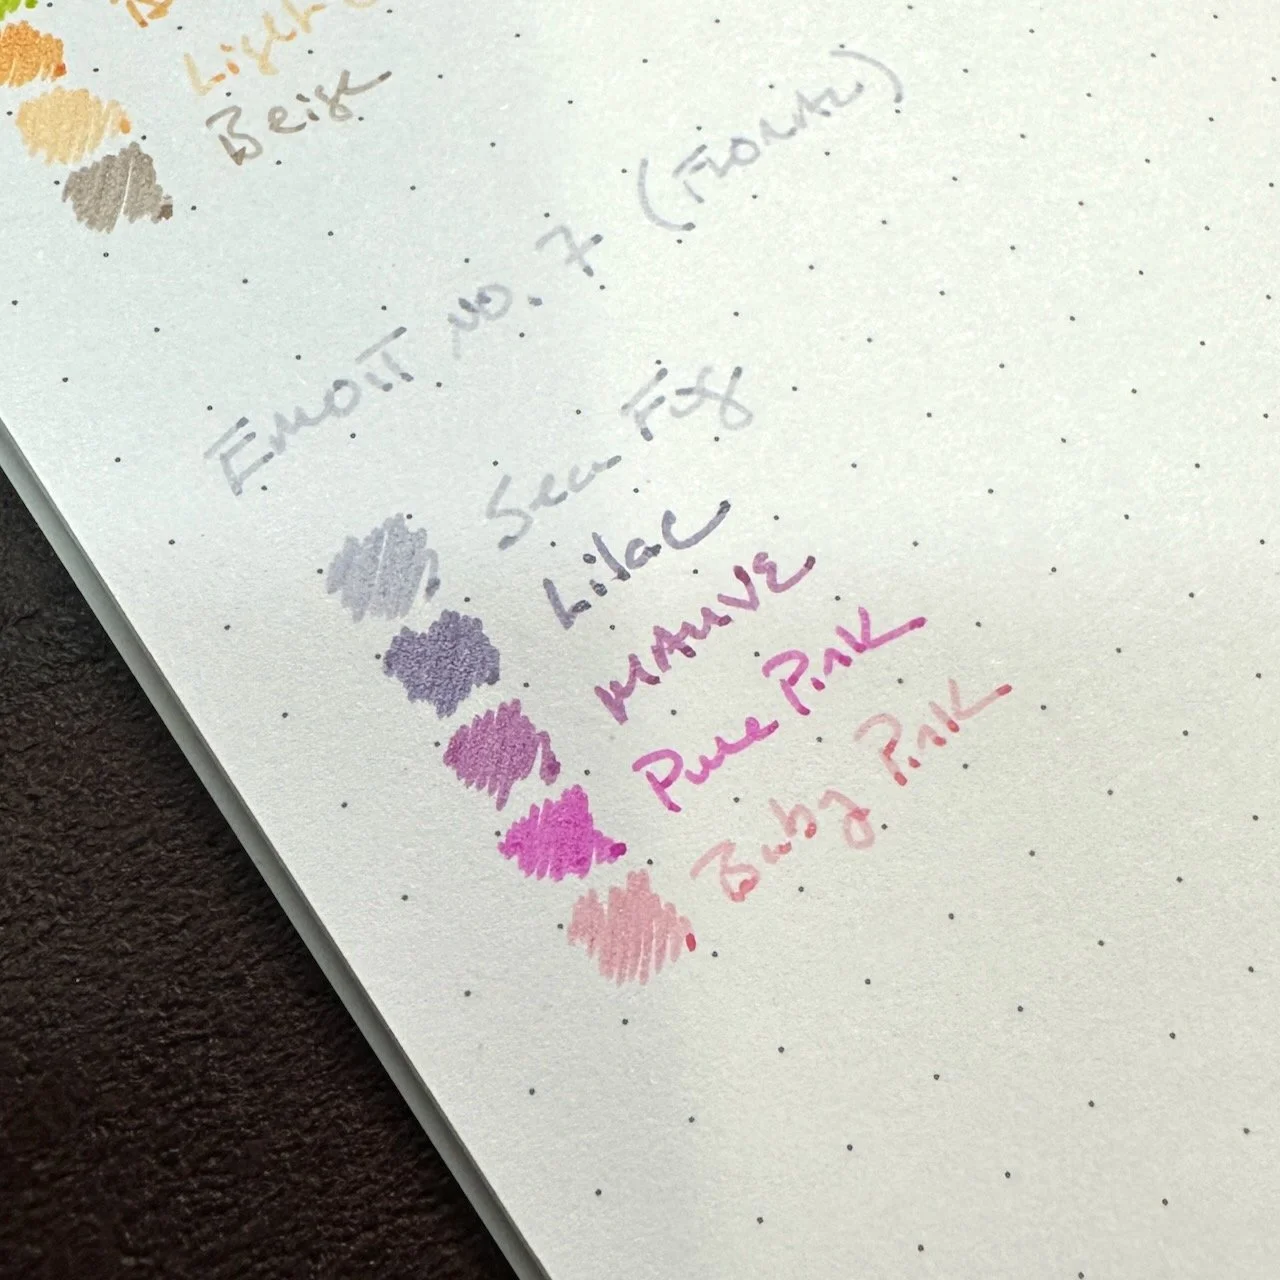 Light
Beige
EMOTT NO. 7 (FLORAL)
Sea Fog
Lilac
MAUVE
Pure Pink
Baby Pink